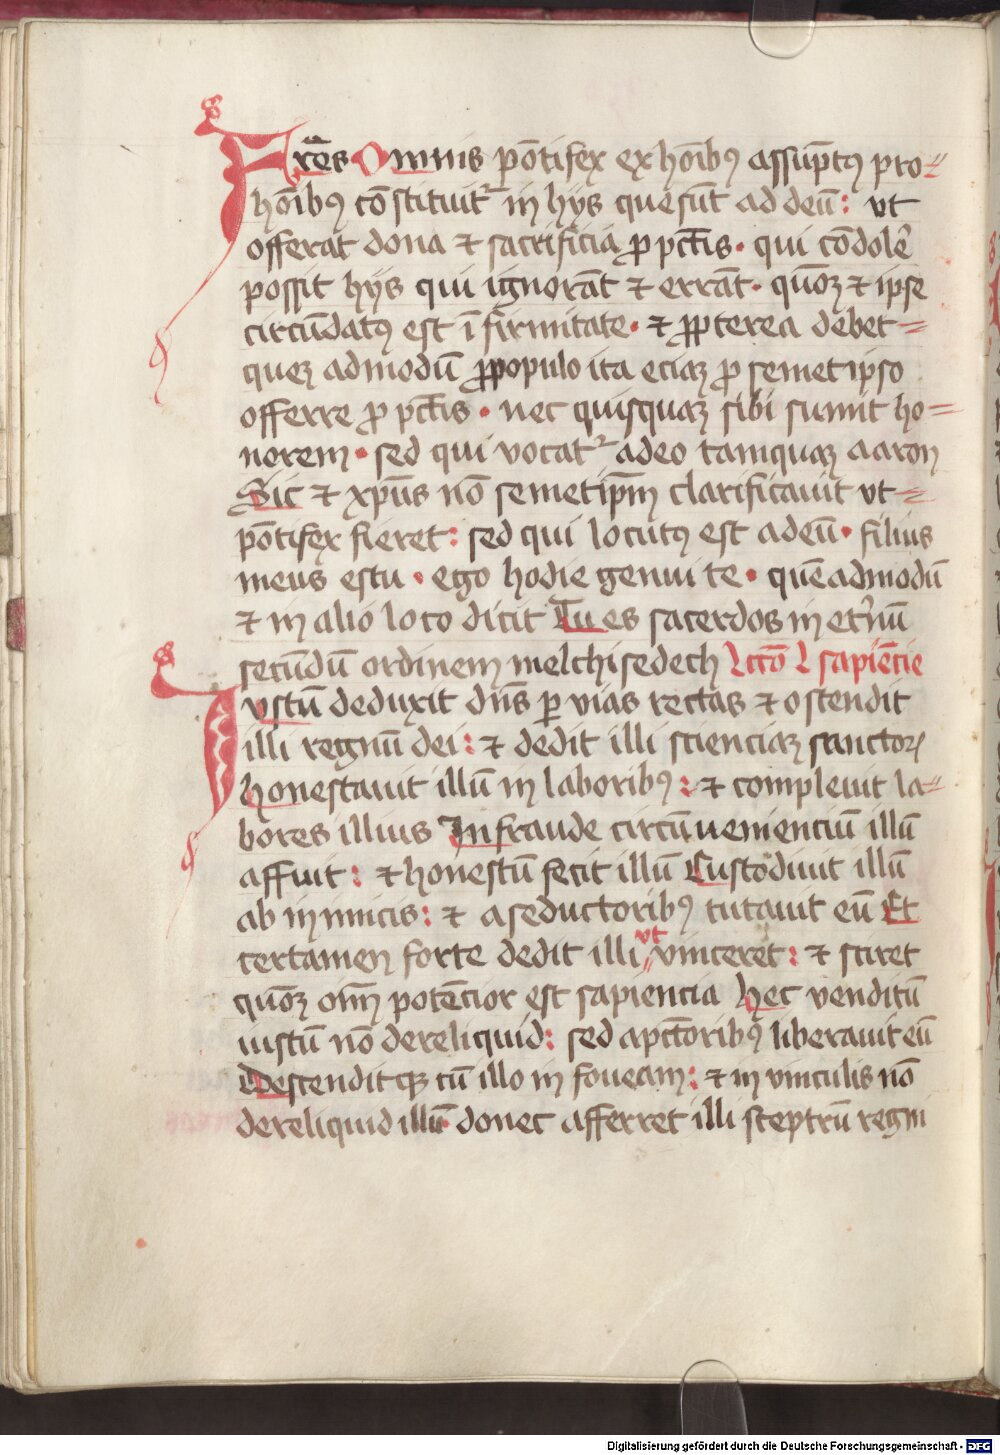 Frēs Omnis pōtifex ex hōibꝯ assūptꝯ pro⸗
hōibꝯ cōstituit᷑ in hijs que sūt ad deū: vt
offerat dona ⁊ sacrificia ꝓ pctīs. qui cōdole᷑
possit hijs qui ignorāt ⁊ errāt. quōꝫ ⁊ ipse
circūdatꝯ est īfirmitate. ⁊ ꝓpterea debet⸗
queꝫ admodū ꝓ populo ita eciaꝫ ꝓ semetipso
offerre ꝓ pctīs. nec quisquaꝫ sibi sumit ho⸗
norem. sed qui vocat᷑ a deo tamquaꝫ aaron
Sic ⁊ xpūs nō semetip̄m clarificauit vt⸗
pōtifex fieret: sed qui locutꝯ est ad eū. filius
meus es tu. ego hodie genui te. quēadmodū
⁊ in alio loco dicit Tu es sacerdos in et᷑nū
secūdū ordinem melchisedech Lcō L sapiēcie
Iustū deduxit dn̄s ꝑ vias rectas ⁊ ostendit
illi regnū dei: ⁊ dedit illi scienciaꝫ sanctoꝝ
honestauit illū in laboribꝯ: ⁊ compleuit la⸗
bores illius In fraude circūuenienciū illū
affuit: ⁊ honestū fecit illū Custodiuit illū
ab inimicis: ⁊ a seductoribꝯ tutauit eū Et
certamen forte dedit illi vt vinceret: ⁊ sciret
quōꝫ om̄ potēcior est sapiencia hec venditū
iustū nō dereliquid: sed a pctōribꝯ liberauit eū
Descenditqꝫ cū illo in foueam: ⁊ in vinculis nō
dereliquid illū. donec afferret illi sceptrū regni
Digitalisierung gefördert durch die Deutsche Forschungsgemeinschaft - DFG